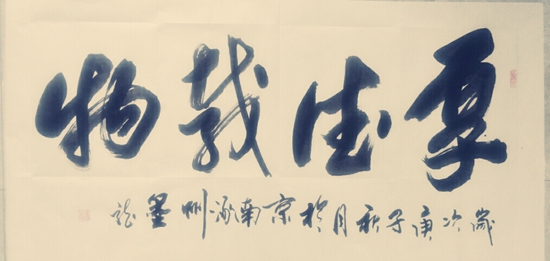 厚德載物
歲次庚子秋月於京南涿州墨龍